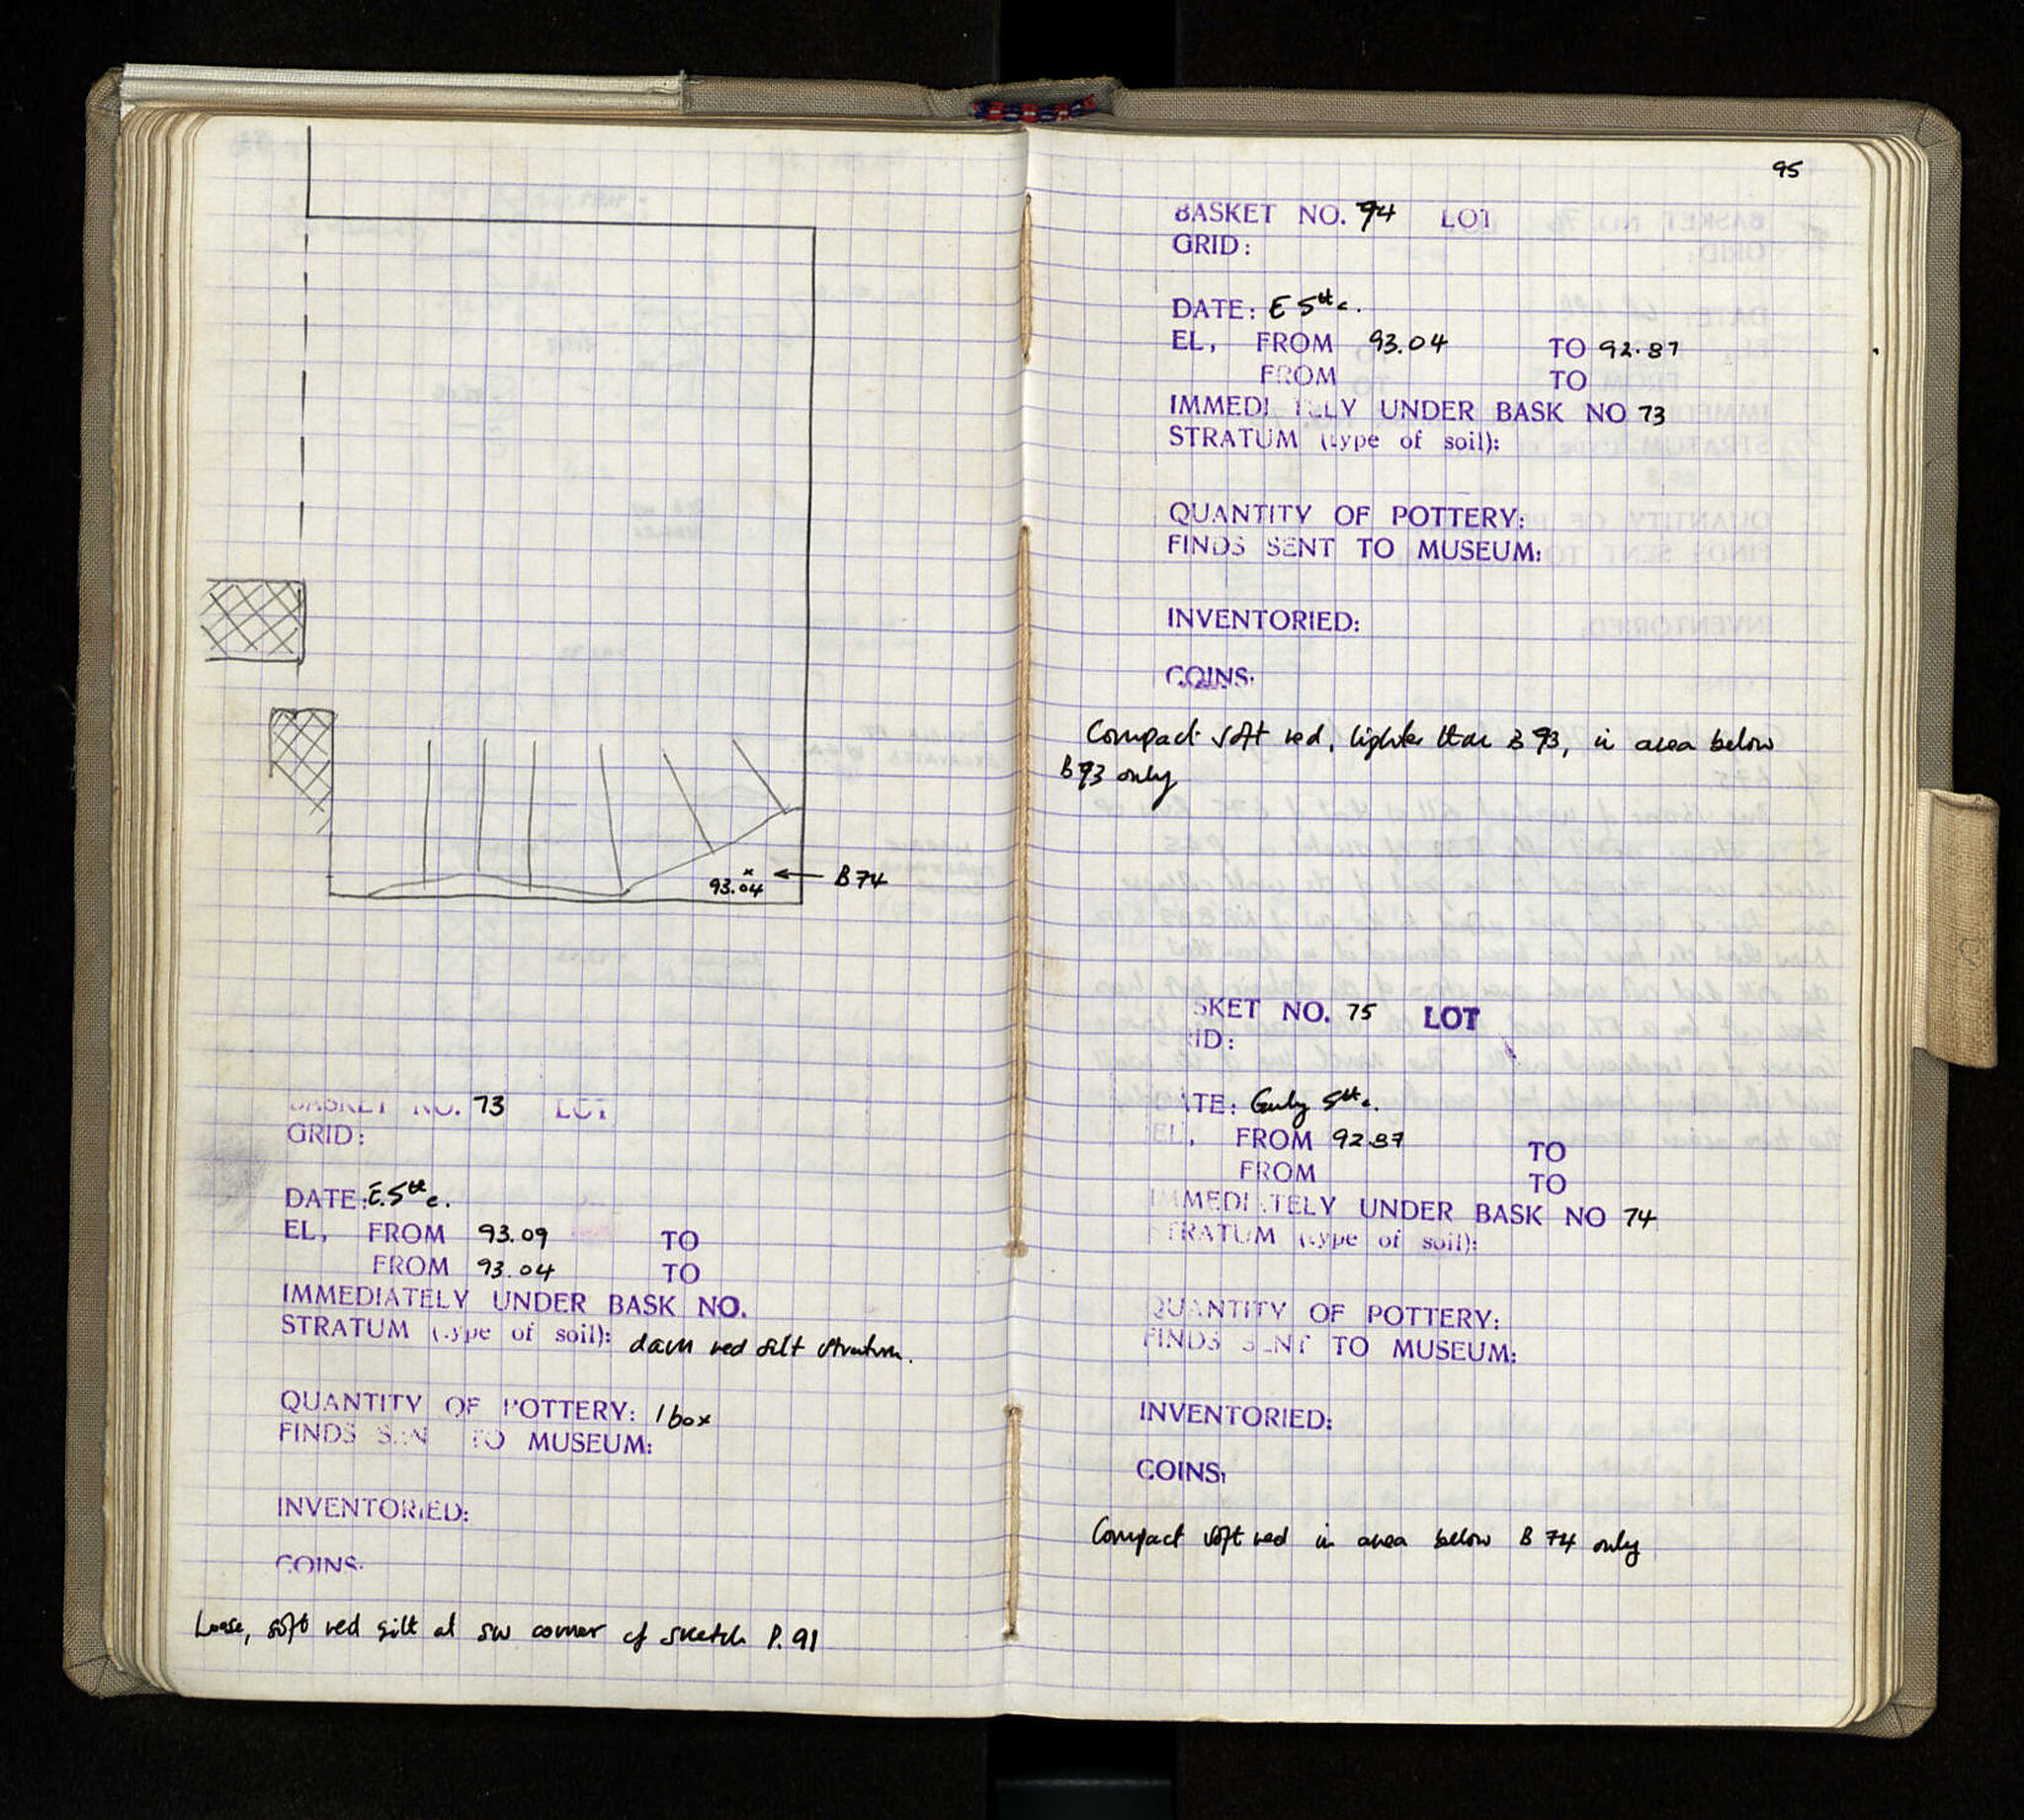 93.04
B 74
BASKET NO. 73 LOT
GRID:
DATE: E. 5th c.
EL, FROM 93.09 TO
FROM 93.04 TO
IMMEDIATELY UNDER BASK NO.
STRATUM (type of soil): red silt stratum.
QUANTITY OF POTTERY: 1 box
FINDS SENT TO MUSEUM:
INVENTORIED:
COINS:
Loose, soft red silt at SW corner of sketch P. 91
95
BASKET NO. 74 LOT
GRID:
DATE: E 5th c.
EL, FROM 93.04 TO 92.87
FROM TO
IMMEDIATELY UNDER BASK NO 73
STRATUM (type of soil):
QUANTITY OF POTTERY:
FINDS SENT TO MUSEUM:
INVENTORIED:
COINS:
Compact soft red, lighter than B 73, in area below
B 73 only
SKET NO. 75 LOT
RID:
DATE: Early 5th c.
EL, FROM 92.87 TO
FROM TO
IMMEDIATELY UNDER BASK NO 74
STRATUM (type of soil):
QUANTITY OF POTTERY:
FINDS SENT TO MUSEUM:
INVENTORIED:
COINS:
Compact soft red in area below B 74 only